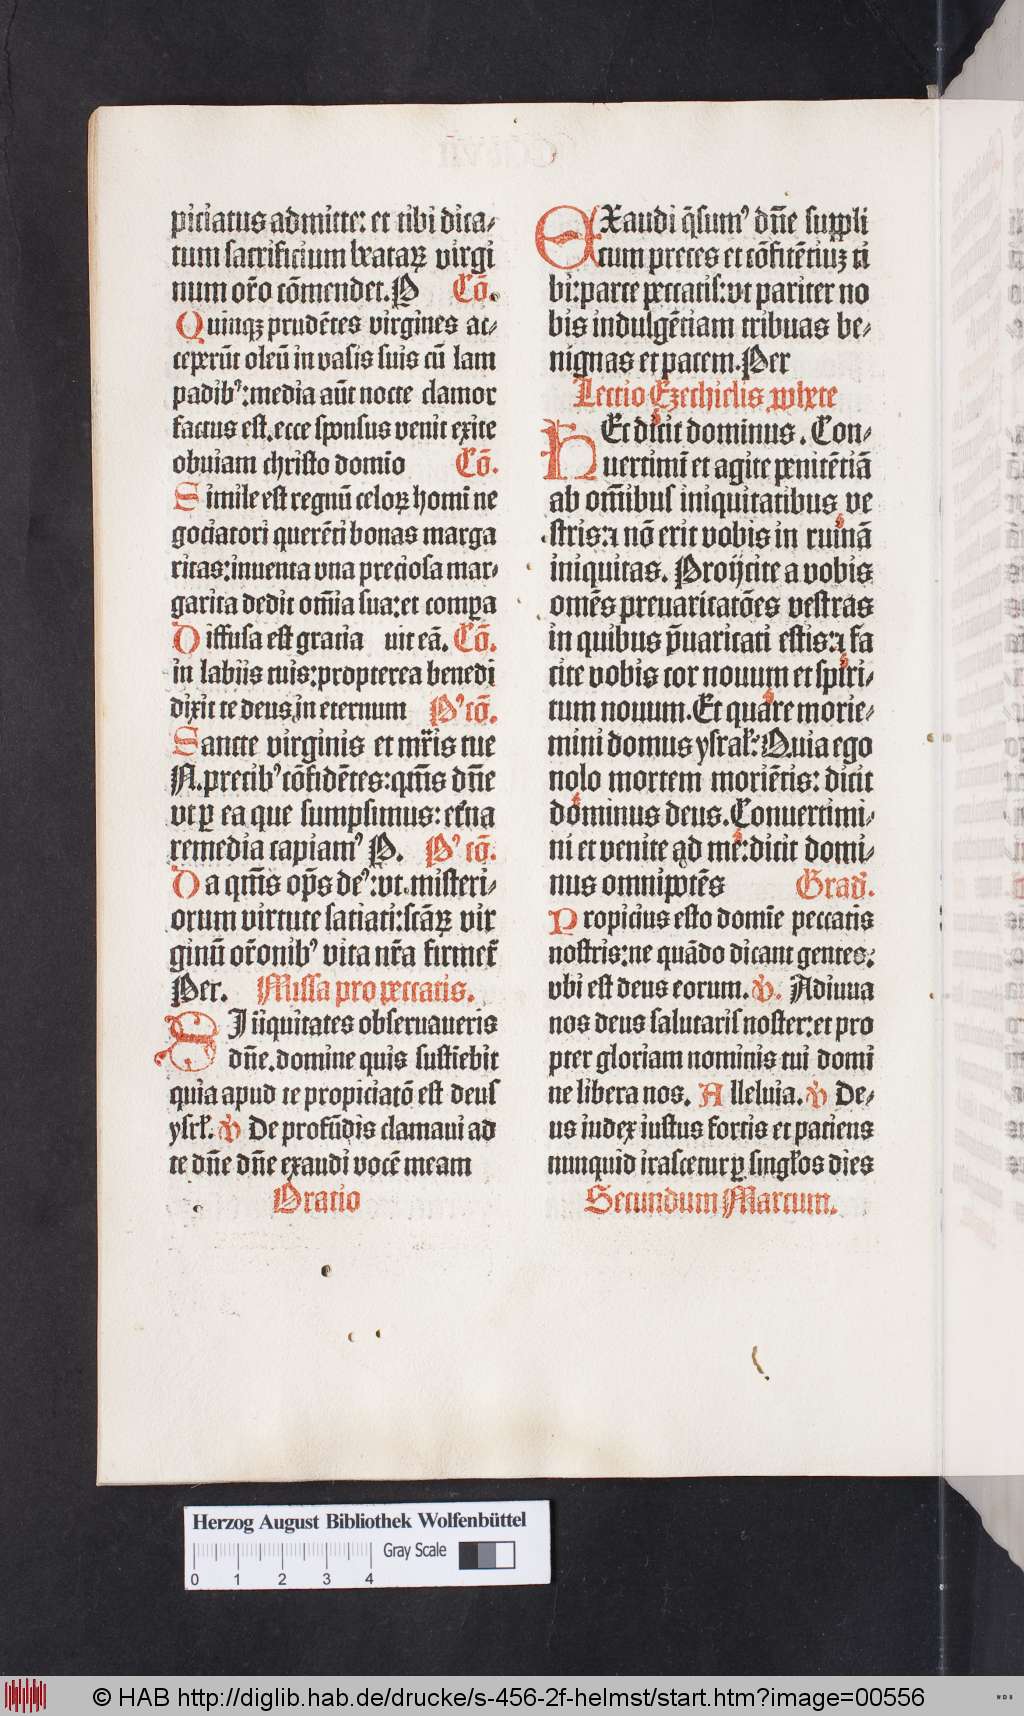 piciatus admitte: et tibi dica⸗
tum sacrificium beataꝝ virgi
num or̄o cōmendet. P Cō.
Quinqꝫ prudētes virgines ac⸗
ceperūt oleū in vasis suis cū lam
padibꝰ: media aūt nocte clamor
factus est. ecce sponsus venit exite
obuiam christo domīo Cō.
Simile est regnū celoꝝ homī ne
gociatori querēti bonas marga
ritas: inuenta vna preciosa mar⸗
garita dedit om̄ia sua: et comꝑa
Diffusa est gracia uit eā. Cō.
in labiis tuis: propterea benedī
dixit te deus in eternum Pꝰ cō.
Sancte virginis et mr̄is tue
N. precibꝰ cōfidētes: qm̄s dn̄e
vt ꝑ ea que sumpsimus: et̄na
remedia capiamꝰ P. Pꝰ cō.
Da qm̄s op̄s deꝰ: vt misteri⸗
orum virtute saciati: sc̄aꝝ vir
ginū or̄onibꝰ vita nr̄a firmet̄
Per. Missa pro peccatis.
SI īiquitates obseruaueris
dn̄e. domine quis sustiebit
quia apud te propiciatō est deus
ysrł. ℣ De profūdis clamaui ad
te dn̄e dn̄e exaudi vocē meam
Oratio
EXaudi q̄sumꝰ dn̄e suppli
cum preces et cōfitētiuꝫ ti
bi: parce peccatis: vt pariter no
bis indulgētiam tribuas be⸗
nignas et pacem. Per
Lectio Ezechielis ꝓphete
HEc dixit dominus. Con⸗
uertimī et agite penitētiā
ab om̄ibus iniquitatibus ve
stris: ⁊ nō erit vobis in ruinā
iniquitas. Proijcite a vobis
omēs preuaricatōes vestras
in quibus p̄uaricati estis: ⁊ fa
cite vobis cor nouum et spiri⸗
tum nouum. Et quare morie⸗
mini domus ysrał: Quia ego
nolo mortem moriētis: dicit
dominus deus. Conuertimi⸗
ni et venite ad me: dicit domi⸗
nus omnipotēs Grad̄.
Propicius esto domīe peccatis
nostris: ne quādo dicant gentes:
vbi est deus eorum. ℣. Adiuua
nos deus salutaris noster: et pro
pter gloriam nominis tui domi
ne libera nos. Alleluia. ℣ De⸗
us iudex iustus fortis et paciens
nunquid irascetur ꝑ singłos dies
Secundum Marcum.
Herzog August Bibliothek Wolfenbüttel
Gray Scale
0 1 2 3 4
© HAB http://diglib.hab.de/drucke/s-456-2f-helmst/start.htm?image=00556